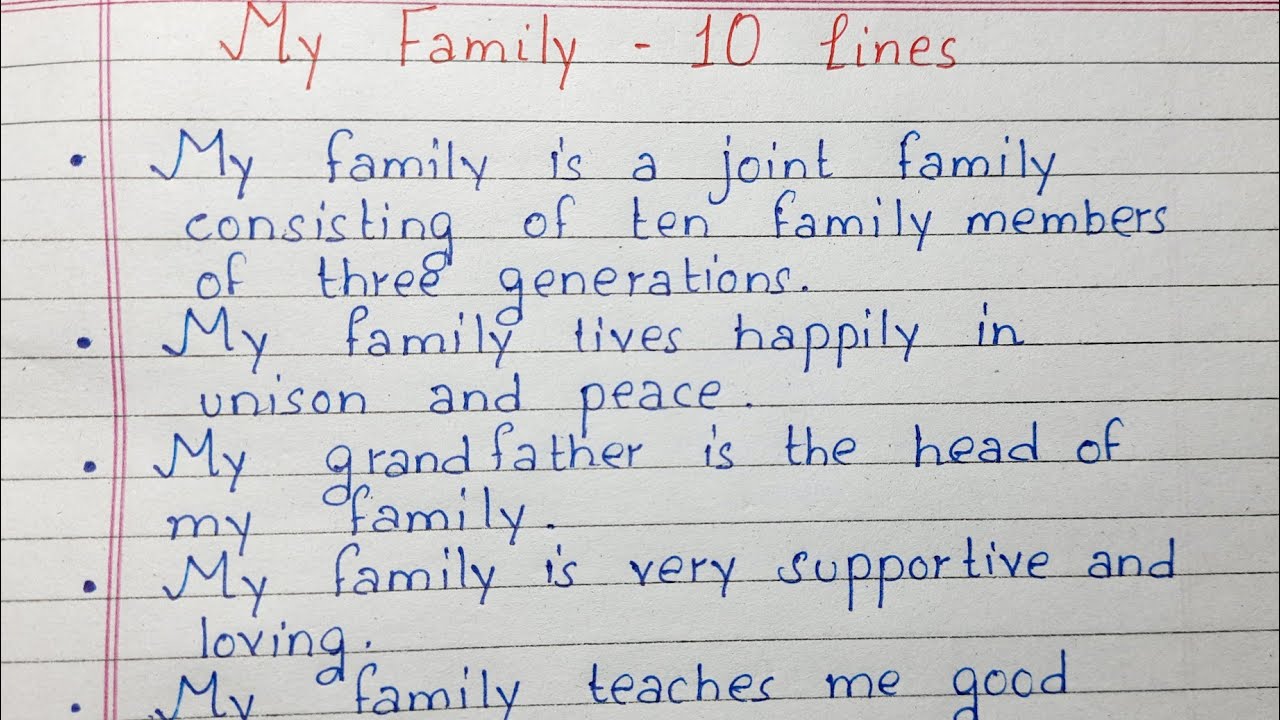 My Family - 10 lines
• My family is a joint family
consisting of ten family members
of three generations.
• My family lives happily in
unison and peace.
• My grandfather is the head of
my family.
• My family is very supportive and
loving.
• My family teaches me good